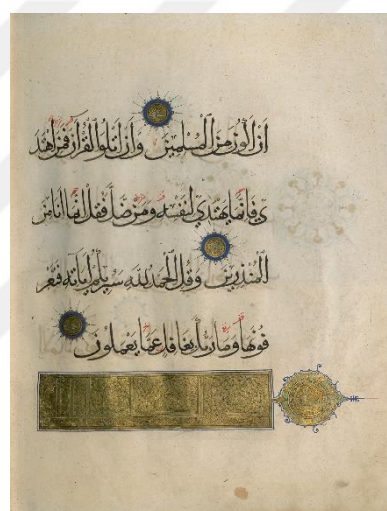 أَنْ أَكُونَ مِنَ الْمُسْلِمِينَ وَأَنْ أَتْلُوَا الْقُرْآنَ فَمَنِ اهْتَدَ
ي فَإِنَّمَا يَهْتَدِي لِنَفْسِهِ وَمَنْ ضَلَّ فَقُلْ إِنَّمَا أَنَا مِنَ
الْمُنْذِرِينَ وَقُلِ الْحَمْدُ لِلَّهِ سَيُرِيكُمْ آيَاتِهِ فَتَعْرِ
فُونَهَا وَمَا رَبُّكَ بِغَافِلٍ عَمَّا يَعْمَلُونَ